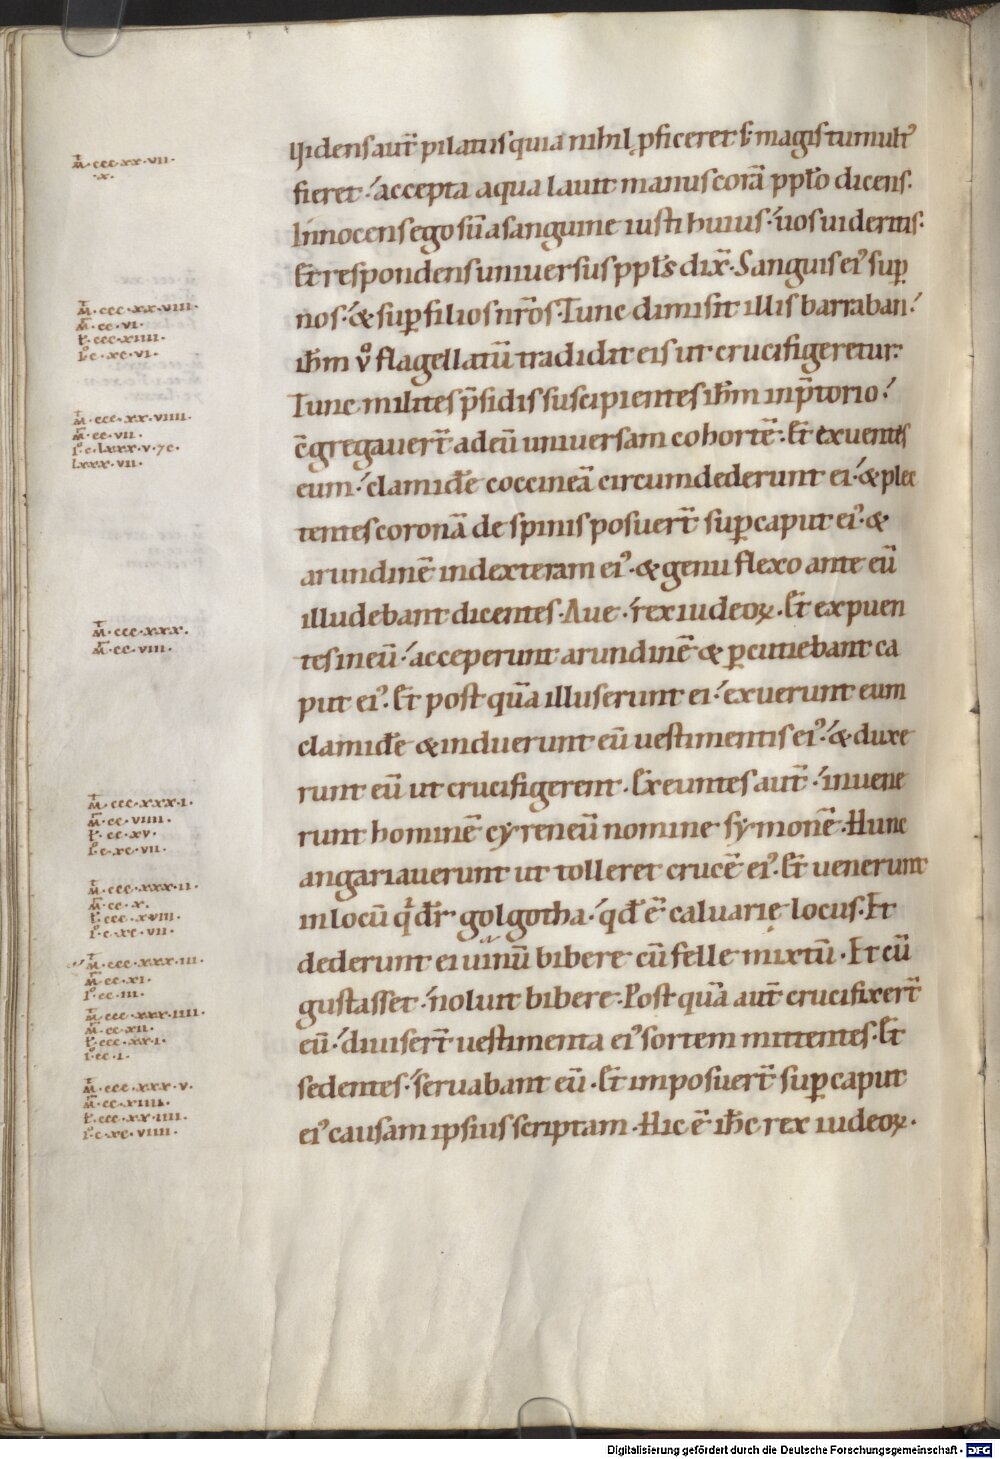 Uidens aut̄ pilatus quia nihil ꝓficeret s; magis tumult᾽
fieret · accepta aqua lauit manus corā ppl̄o dicens.
Innocens ego sū a sanguine iusti huius · uos uideritis.
Et respondens uniuersus ppl̄s dix̄. Sanguis ei᾽ suꝑ
nos · & suꝑ filios nr̄os. Tunc dimisit illis barraban ·
ih̄m v̊ flagellatū tradidit eis ut crucifigeretur.
Tunc milites p̄sidis suscipientes ih̄m in p̄torio ·
c̄gregauert̄ ad eū uniuersam cohortē. Et exuentes
eum · clamidē coccineā circumdederunt ei · & plec
tentes coronā de spinis posuert̄ suꝑ caput ei᾽ · &
arundinē in dexteram ei᾽ · & genu flexo ante eū
illudebant dicentes. Aue · rex iudeoꝝ. Et expuen
tes in eū · acceperunt arundinē & ꝑcutiebant ca
put ei᾽. Et post quā illuserunt ei · exuerunt eum
clamidē & induerunt eū uestimentis ei᾽ · & duxe
runt eū ut crucifigerent. Exeuntes aut̄ · inuene
runt hominē cyreneū nomine symonē. Hunc
angariauerunt ut tolleret crucē ei᾽. Et uenerunt
in locū q̇ dr̄ golgotha · qđ ē caluarię locus. Et
dederunt ei uinū bibere cū felle mixtū. Et cū
gustasset · noluit bibere. Post quā aut̄ crucifixert̄
eū · diuisert̄ uestimenta ei᾽ sortem mittentes. Et
sedentes · seruabant eū. Et imposuert̄ suꝑ caput
ei᾽ causam ipsius scriptam. Hic ē ih̄c rex iudeoꝝ.
M̄ · ccc · xx · vii ·
· x ·
M̄ · ccc · xx · viii ·
M̄ · cc · vi ·
L̄ · ccc · xiiii ·
I̊ · c · xc · vi ·
M̄ · ccc · xx · viiii ·
M̄ · cc · vii ·
I̊ · c · lxxx · v · 7 c ·
lxxx · vii ·
M̄ · ccc · xxx ·
M̄ · cc · viii ·
M̄ · ccc · xxx · i ·
M̄ · cc · viiii ·
L̄ · cc · xv ·
I̊ · c · xc · vii ·
M̄ · ccc · xxx · ii ·
M̄ · cc · x ·
L̄ · ccc · xviii ·
I̊ · c · xc · vii ·
M̄ · ccc · xxx · iii ·
M̄ · cc · xi ·
I̊ · cc · iii ·
M̄ · ccc · xxx · iiii ·
M̄ · cc · xii ·
L̄ · ccc · xx · i ·
I̊ · cc · i ·
M̄ · ccc · xxx · v ·
M̄ · cc · xiiii ·
L̄ · ccc · xx · iiii ·
I̊ · c · xc · viiii ·
Digitalisierung gefördert durch die Deutsche Forschungsgemeinschaft - DFG